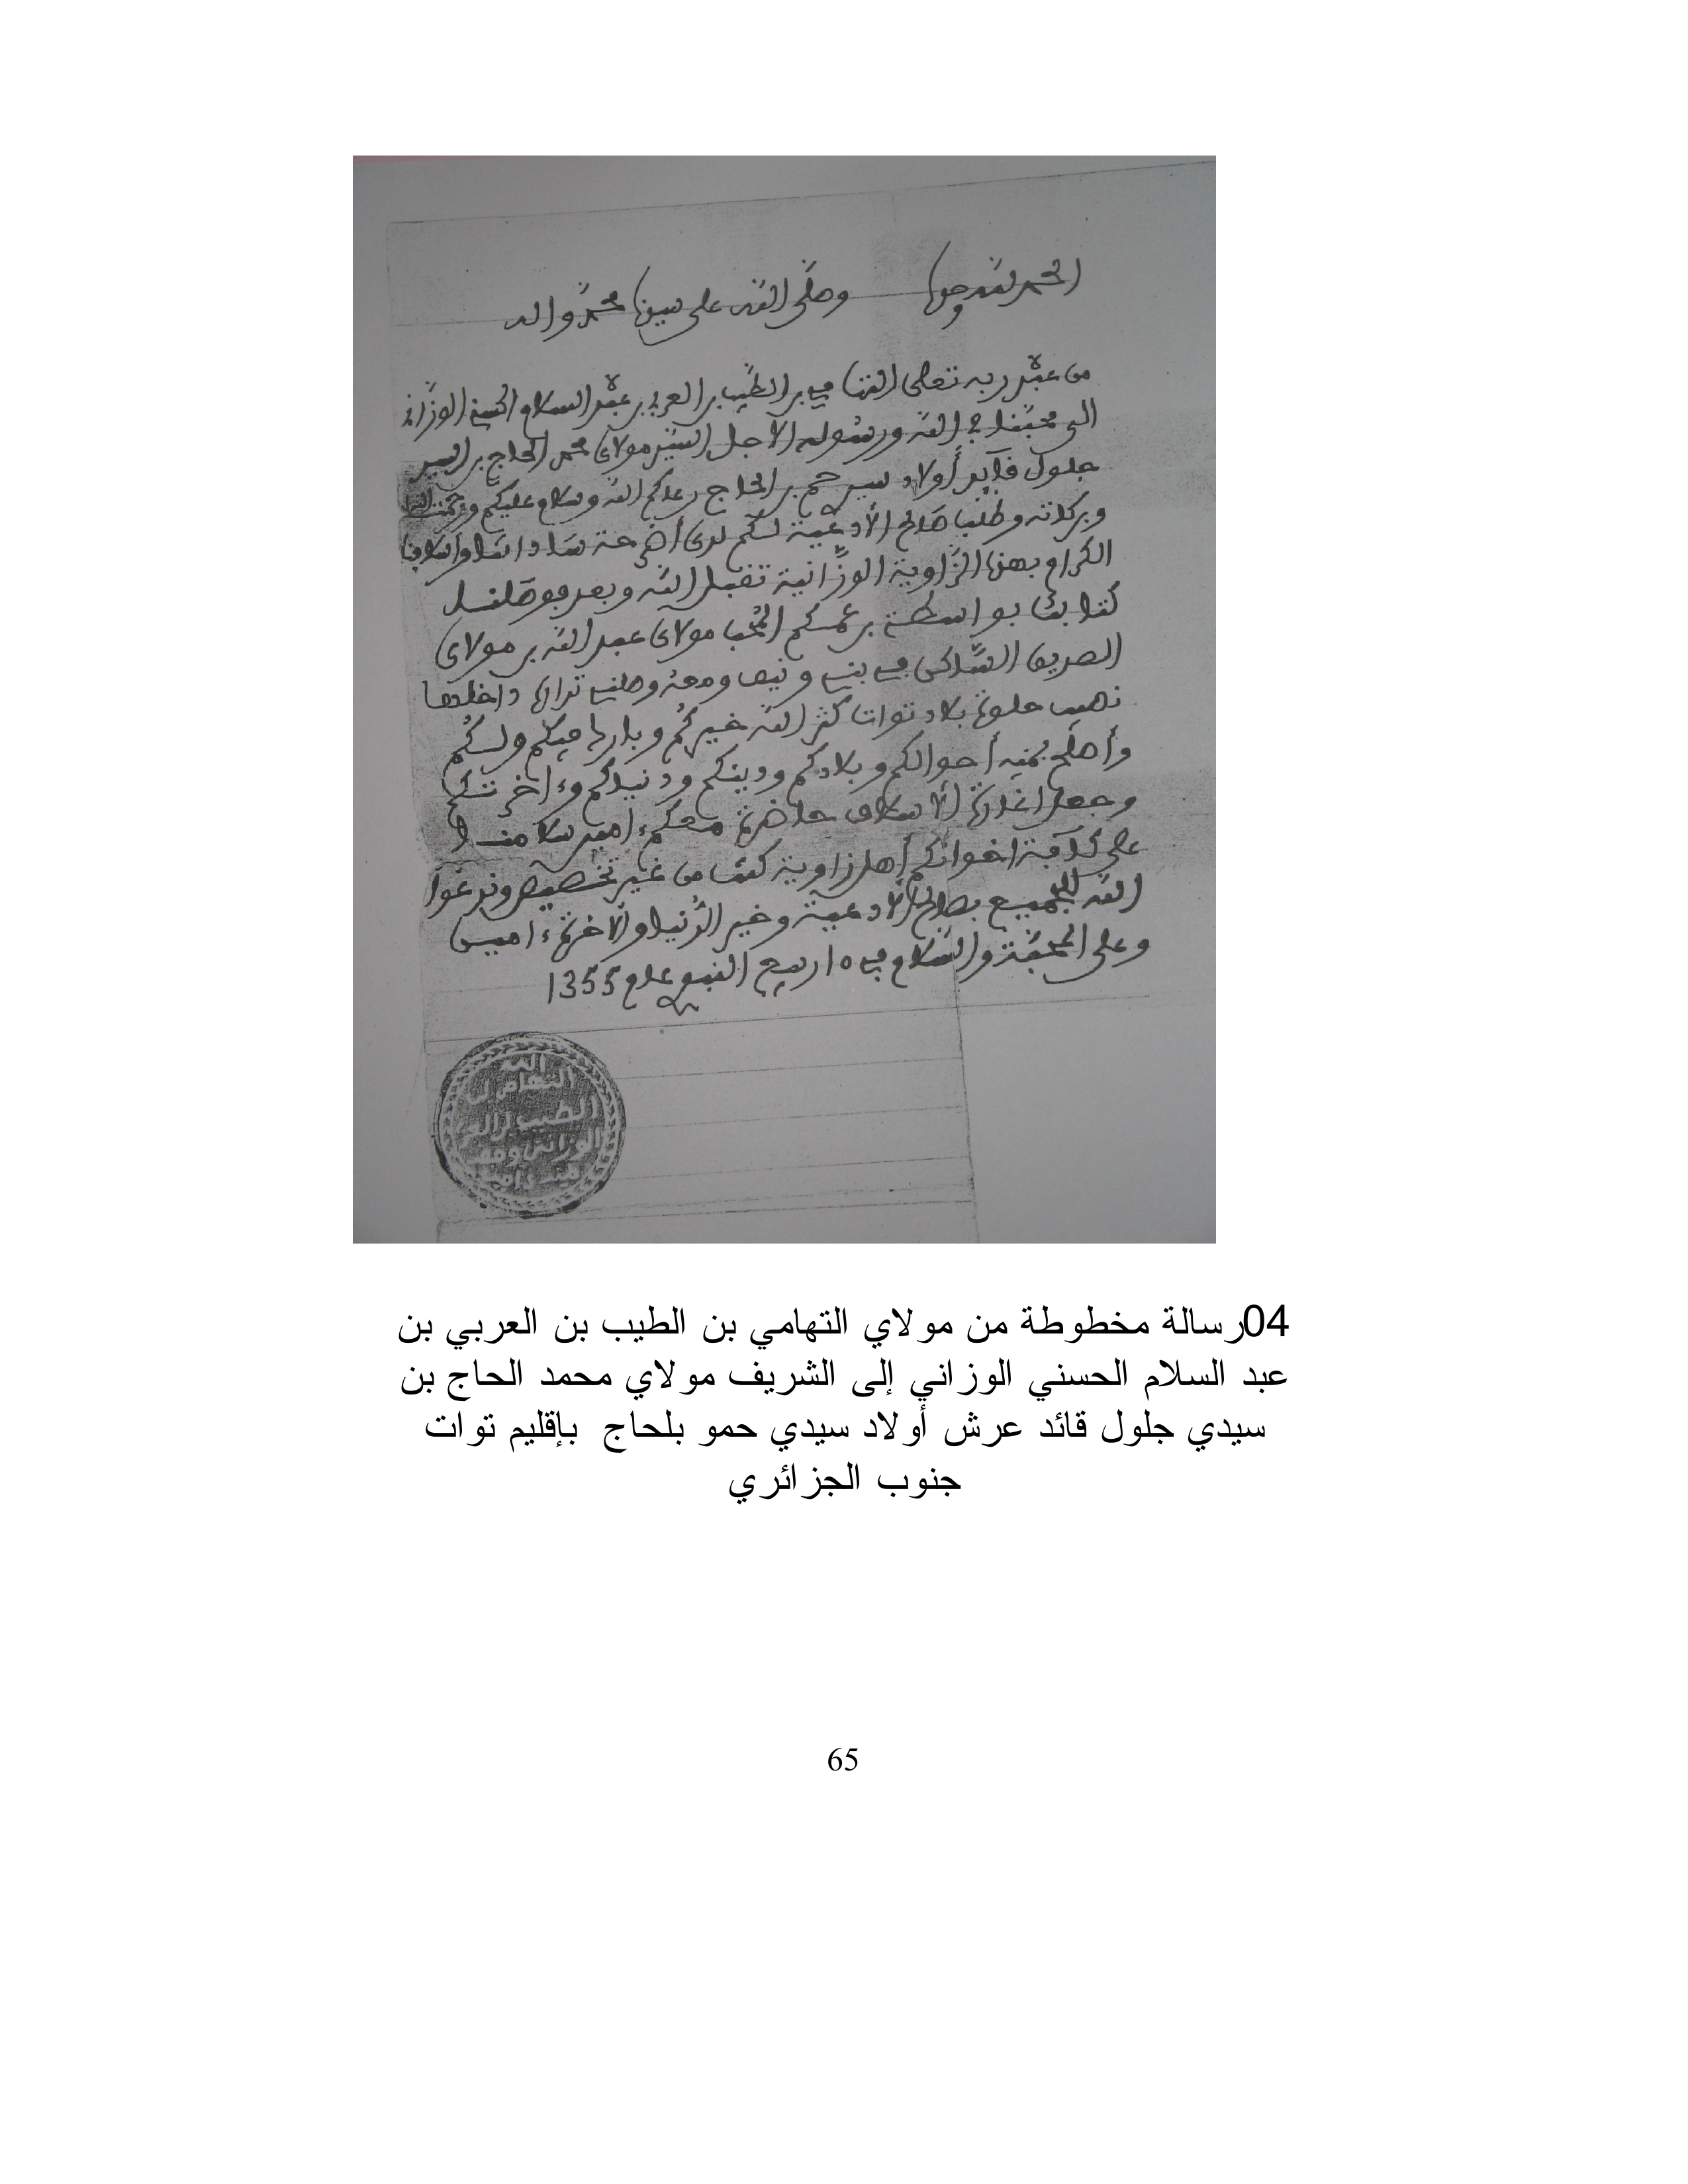 الحمد لله وحده وصلى الله على سيدنا محمد وآله
من عبد ربه تعالى التهامي بن الطيب بن العربي بن عبد السلام الحسني الوزاني
الى محبنا في الله ورسوله الأجل السيد مولاي محمد الحاج بن السيد
جلول قايد أولاد سيد حم بن الحاج رعاكم الله وسلام عليكم ورحمت الله
وبركاته وطلب صالح الأدعية لكم لدى أضرحة ساداتنا وأسلافنا
الكرام بهذه الزاوية الوزانية تقبل الله وبعد فوصلنا
كتابك بواسطة بن عمكم المحب مولاي عبد الله بن مولاي
الصديق الساكن في بني ونيف ومعه وصلني
بلاد توات كثر الله خيركم وبارك فيكم ولكم
وأصلح بمنه أحوالكم وبلادكم ودينكم ودنياكم وءاخرتكم
وجعل الأسلاف حاضرة معكم ءامين سلامنا
على كافة اخوانكم أهل زاوية كنت من غير تخصيص وندعوا
الله للجميع بصالح الأدعية وخير الدنيا والآخرة ءامين
وعلى المحبة والسلام في 15 ربيع النبوي عام 1355
التهامي ابن
الطيب بن العربي
الوزاني
04رسالة مخطوطة من مولاي التهامي بن الطيب بن العربي بن
عبد السلام الحسني الوزاني إلى الشريف مولاي محمد الحاج بن
سيدي جلول قائد عرش أولاد سيدي حمو بلحاج بإقليم توات
جنوب الجزائري
65